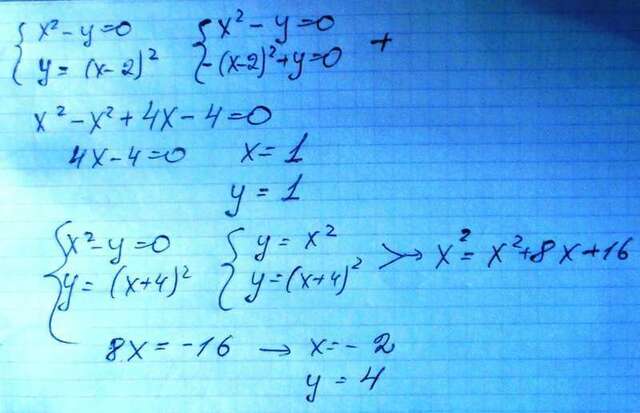 { x² - y = 0 { x² - y = 0
{ y = (x-2)² { -(x-2)² + y = 0 +
x² - x² + 4x - 4 = 0
4x - 4 = 0 x = 1
y = 1
{ x² - y = 0 { y = x²
{ y = (x+4)² { y = (x+4)² → x² = x² + 8x + 16
8x = -16 → x = -2
y = 4